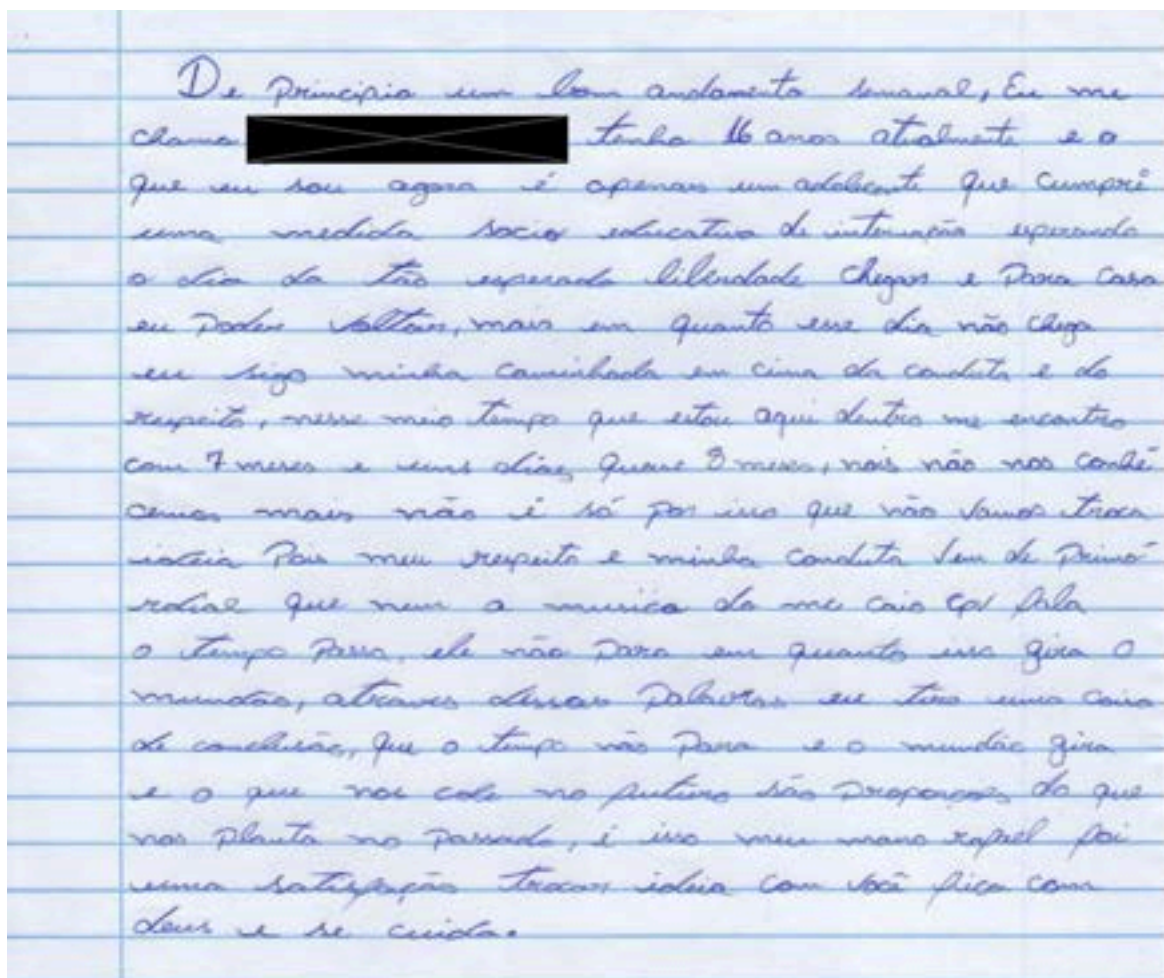 De principio um bom andamento semanal, Eu me
chamo tenho 16 anos atualmente e o
que eu sou agora é apenas um adolecente que cumpri
uma medida socio educativa de internação esperando
o dia da tão esperada liberdade chegar e para casa
eu poder voltar, mais em quanto esse dia não chega
eu sigo minha caminhada em cima da conduta e do
respeito, nesse meio tempo que estou aqui dentro me encontro
com 7 meses e uns dias, quase 8 meses, nois não nos conhe
cemos mais não é só por isso que não vamos troca
ideia Pois meu respeito e minha conduta vem de primo
rdial que nem a musica do mc caio fala
o tempo passa, ele não para em quanto isso gira o
mundão, atraves dessas palavras eu tiro uma coisa
de conclusão, que o tempo não para e o mundão gira
e o que nos colhe no futuro são proporcoes do que
nos planta no passado, é isso meu mano rafael foi
uma satisfação trocar ideia com você fica com
deus e se cuida.